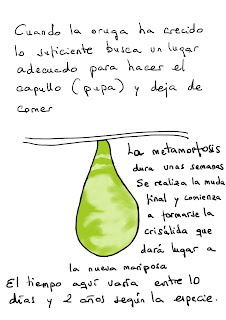 Cuando la oruga ha crecido
lo suficiente busca un lugar
adecuado para hacer el
capullo (pupa) y deja de
comer
La metamorfosis
dura unas semanas
Se realiza la muda
final y comienza
a formarse la
crisálida que
dará lugar a
la nueva mariposa
El tiempo aquí varía entre 10
días y 2 años según la especie.